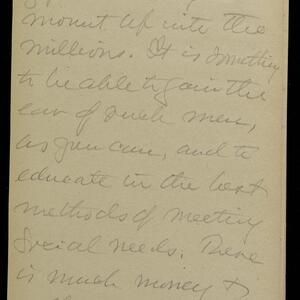 mount up into the
millions. It is something
to be able to gain the
ear of such men,
as you can, and to
educate in the best
methods of meeting
social needs. There
is much money to